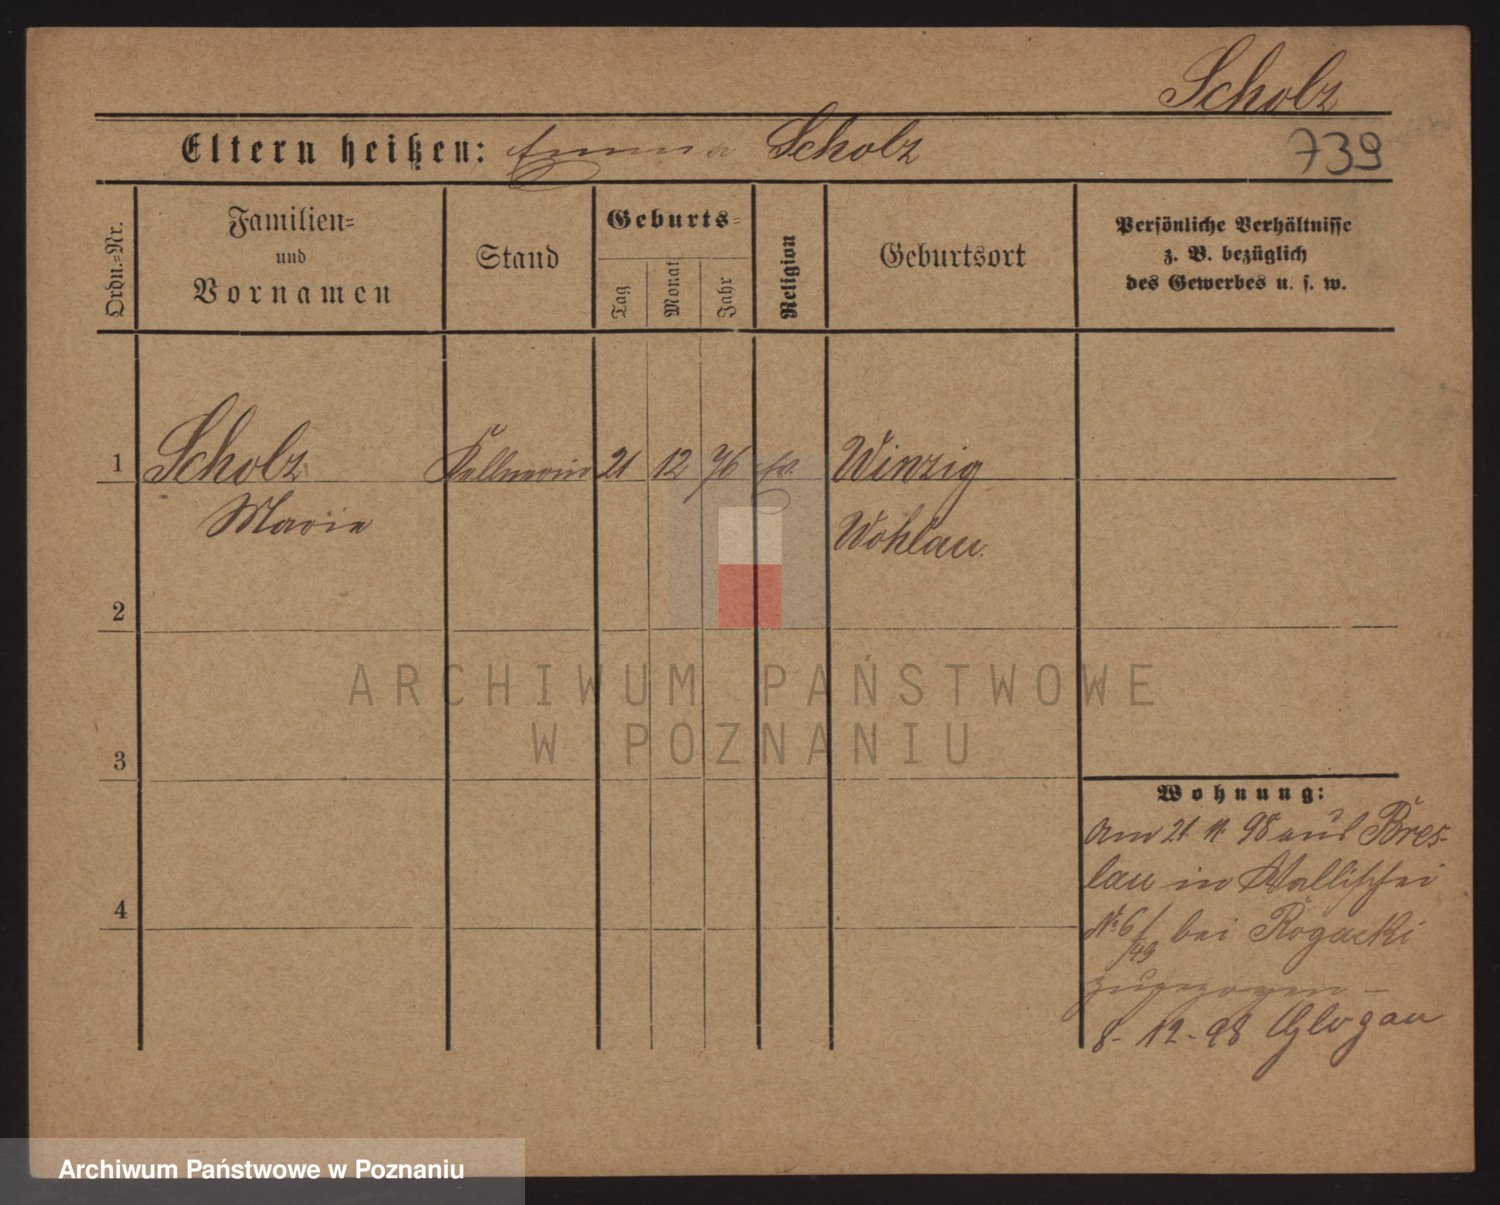 Scholz
Eltern heißen: Emma Scholz
739
Ordn.=Nr.
Familien=
und
Vornamen
Stand
Geburts=
Tag
Monat
Jahr
Religion
Geburtsort
Persönliche Verhältnisse
z. B. bezüglich
des Gewerbes u. s. w.
1 Scholz Kellnerin 21 12 76 ev. Winzig
Marie
Wohlau.
2
3
4
Wohnung:
am 21. 11. 98 aus Bres-
lau in Wallischei
No 6/49 bei Rogacki
zugezogen –
8-12-98 Glogau
ARCHIWUM PAŃSTWOWE
W POZNANIU
Archiwum Państwowe w Poznaniu